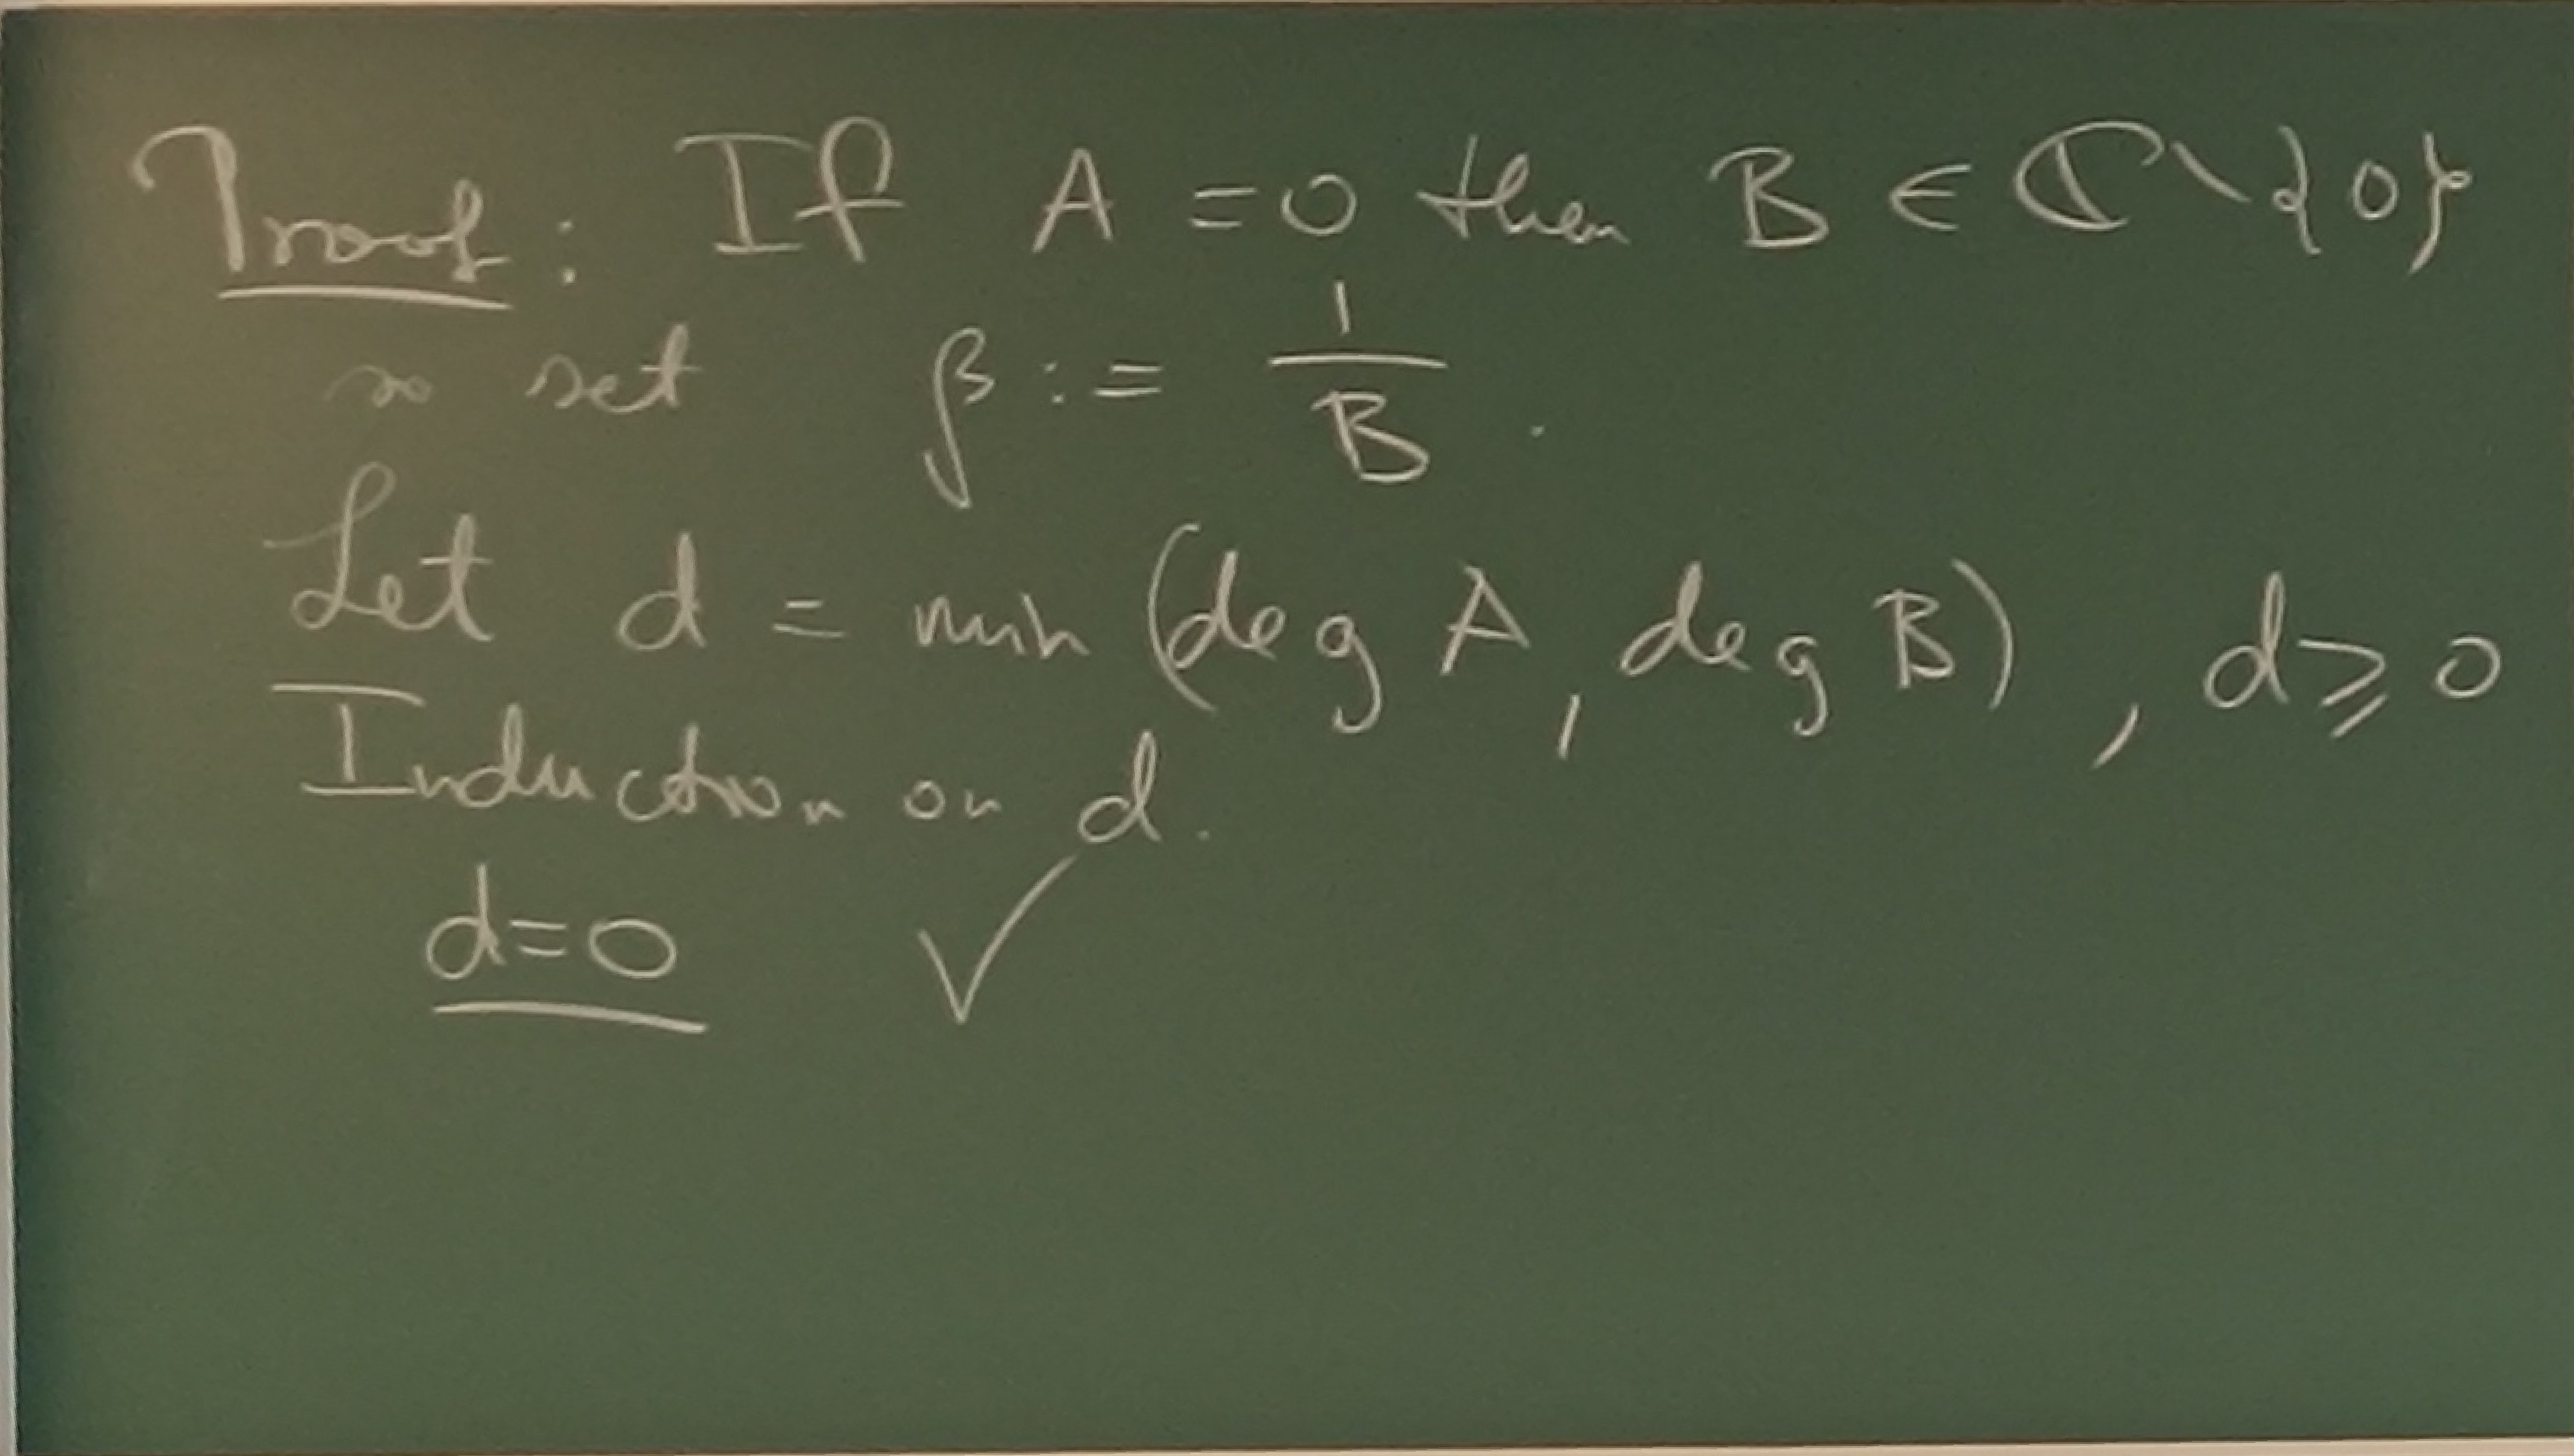 Proof: If A = 0 then B ∈ ℂ \ {0}
so set β := 1/B.
Let d = min (deg A, deg B), d ⩾ 0
Induction on d.
d=0 ✓